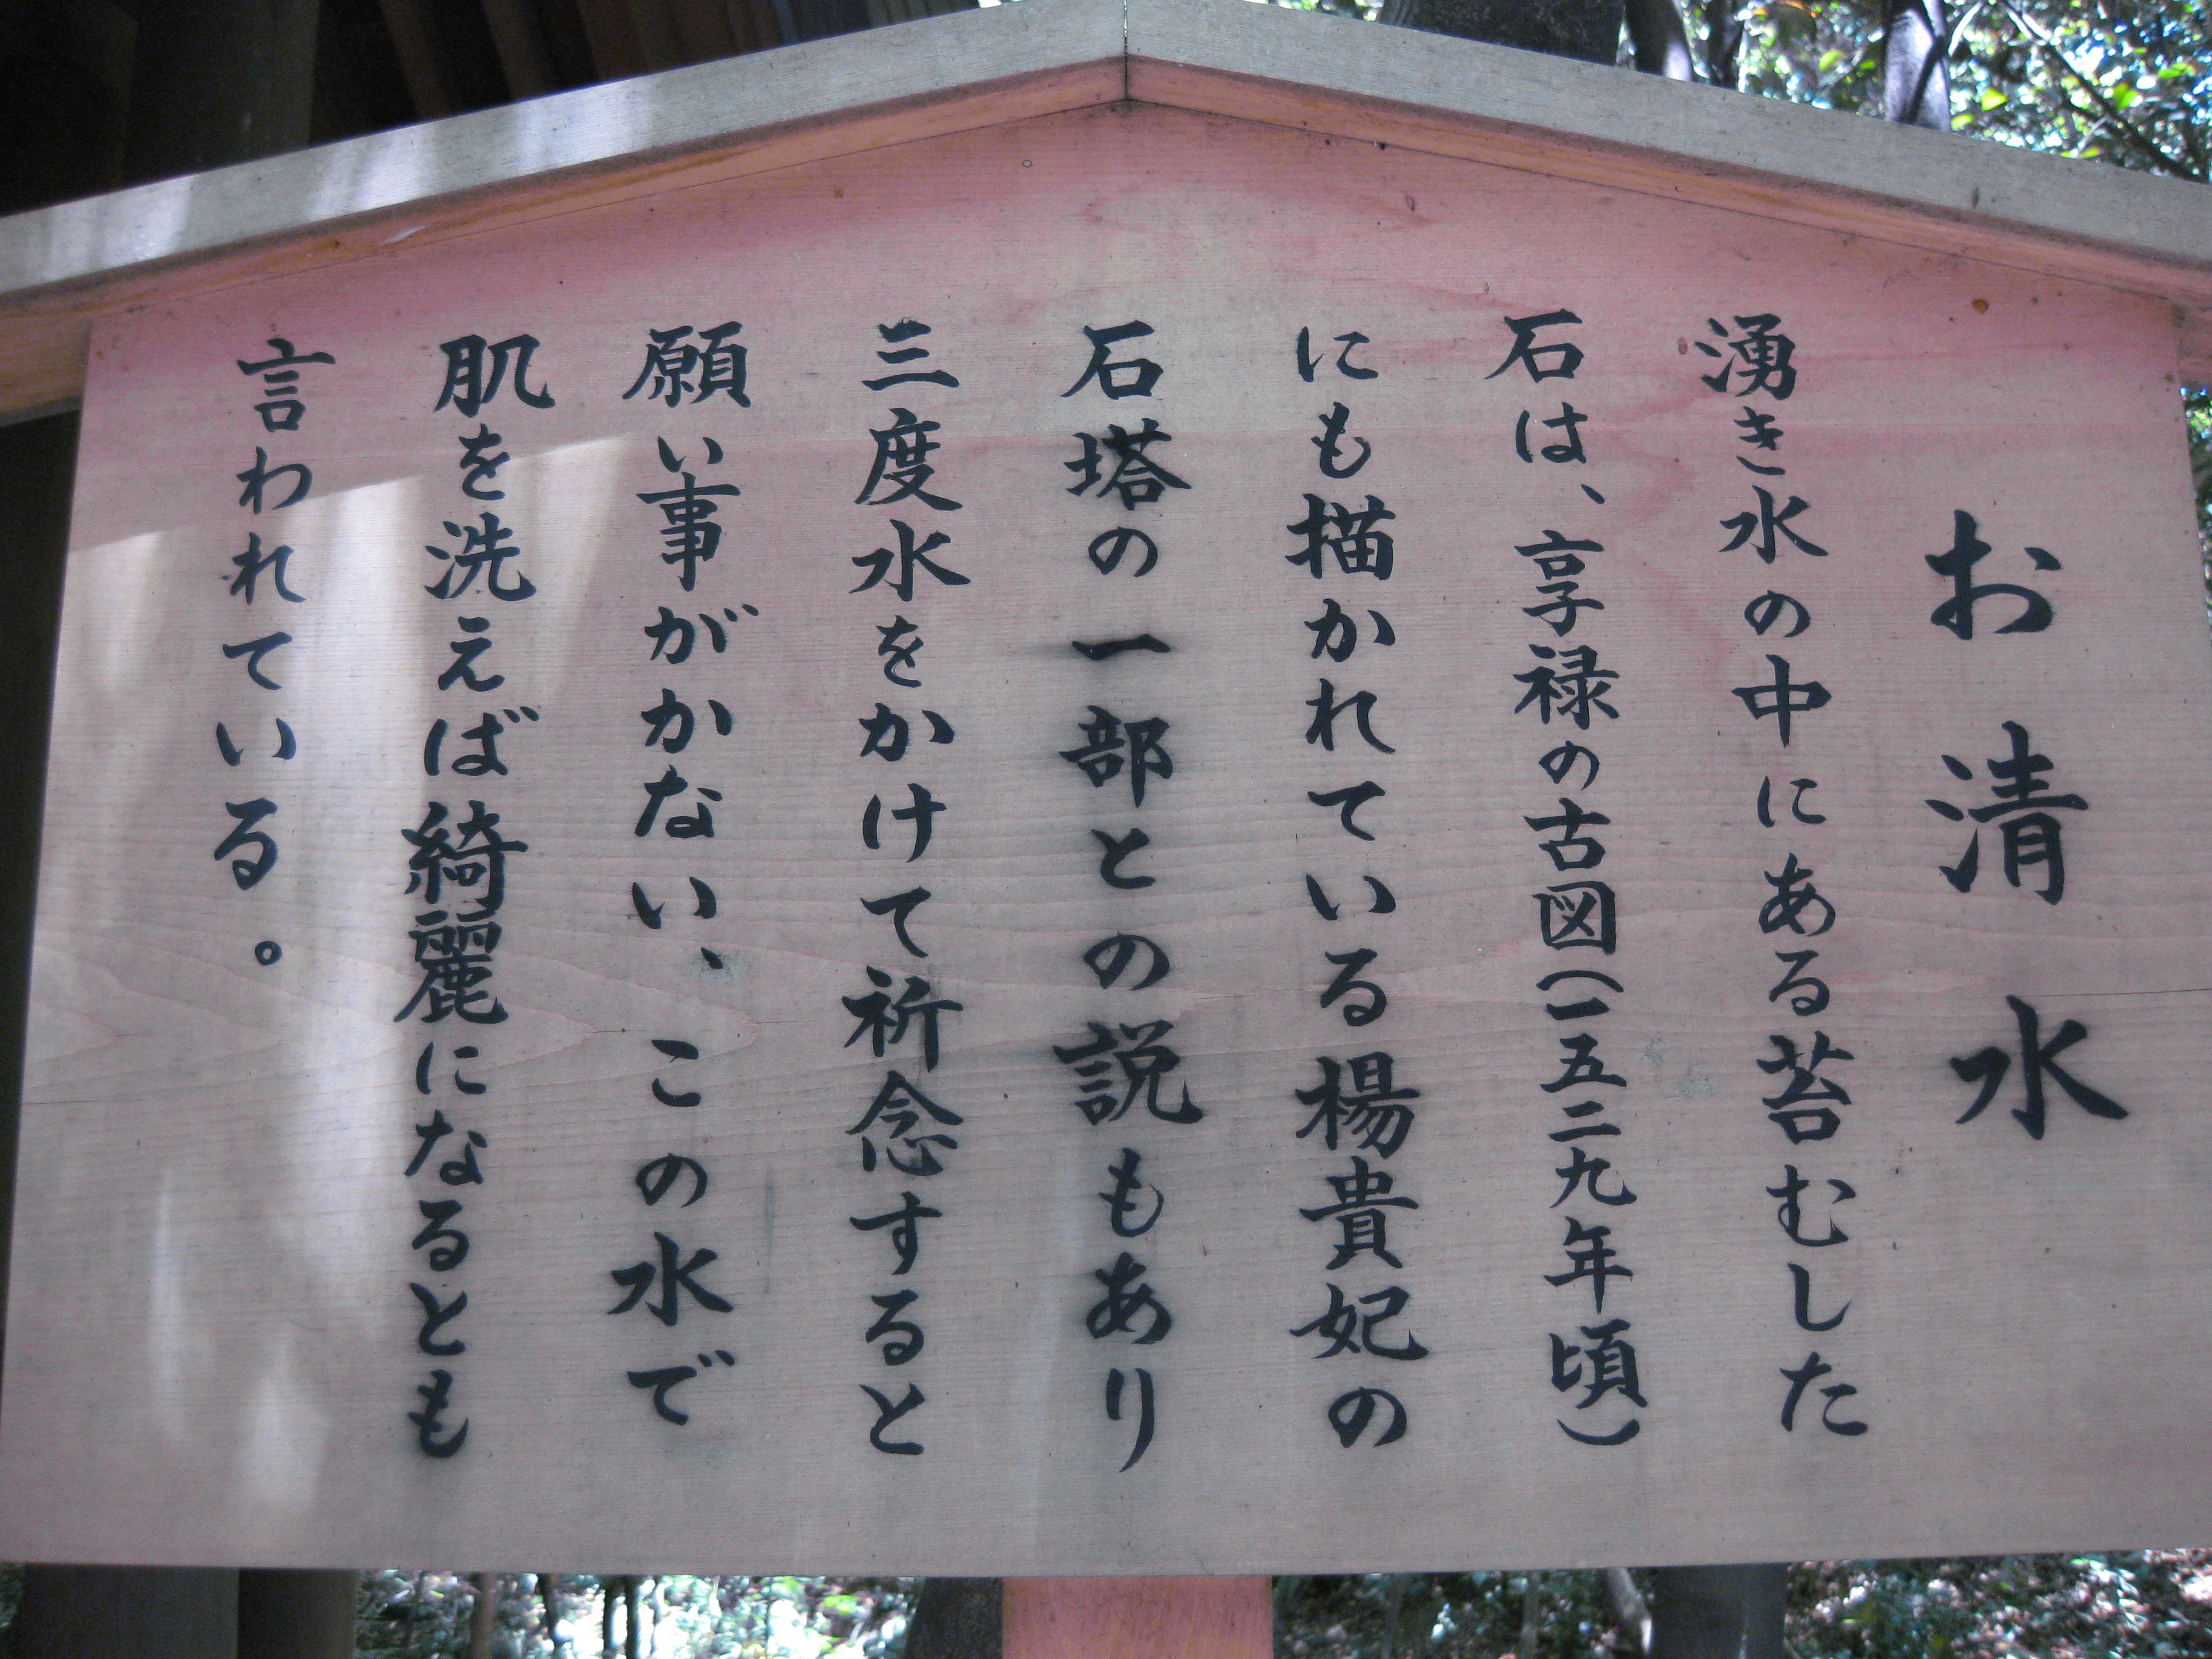 お清水
湧き水の中にある苔むした
石は、享禄の古図(一五二九年頃)
にも描かれている楊貴妃の
石塔の一部との説もあり
三度水をかけて祈念すると
願い事がかない、この水で
肌を洗えば綺麗になるとも
言われている。